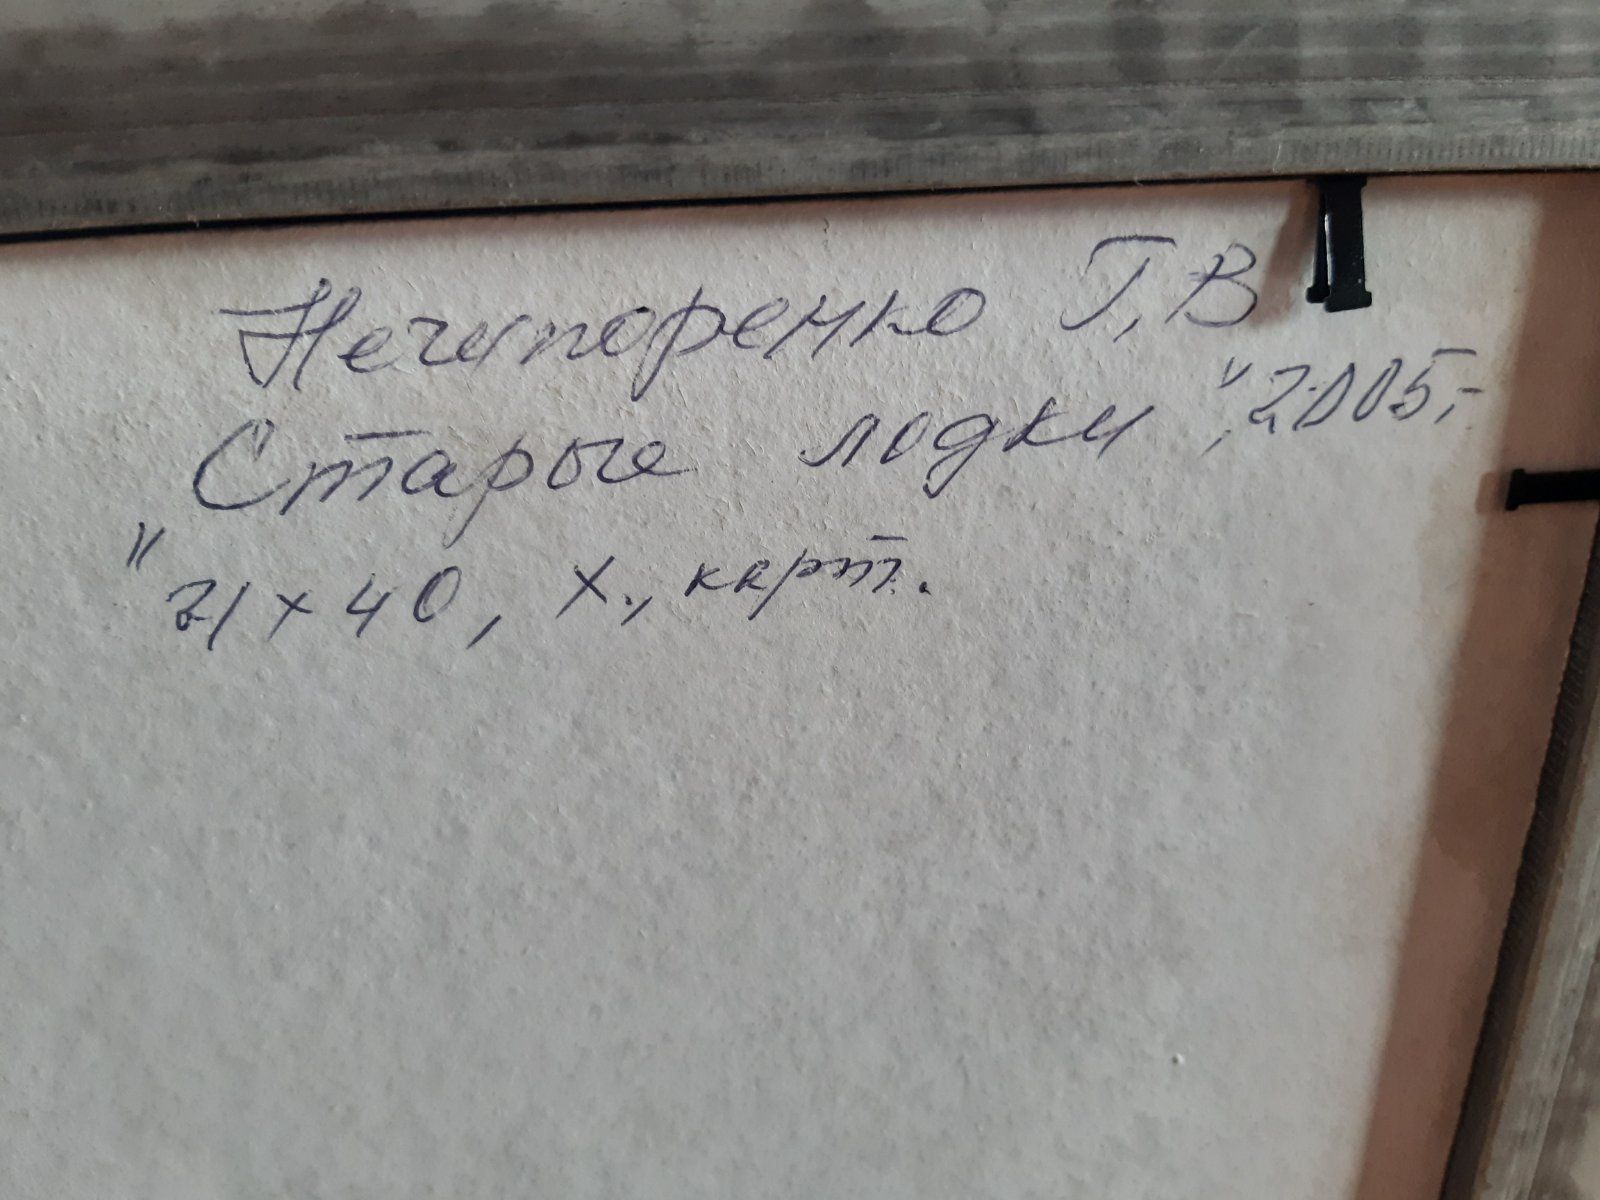 Нечипоренко Г.В
"Старые лодки", 2005,-
21 х 40, х., карт.